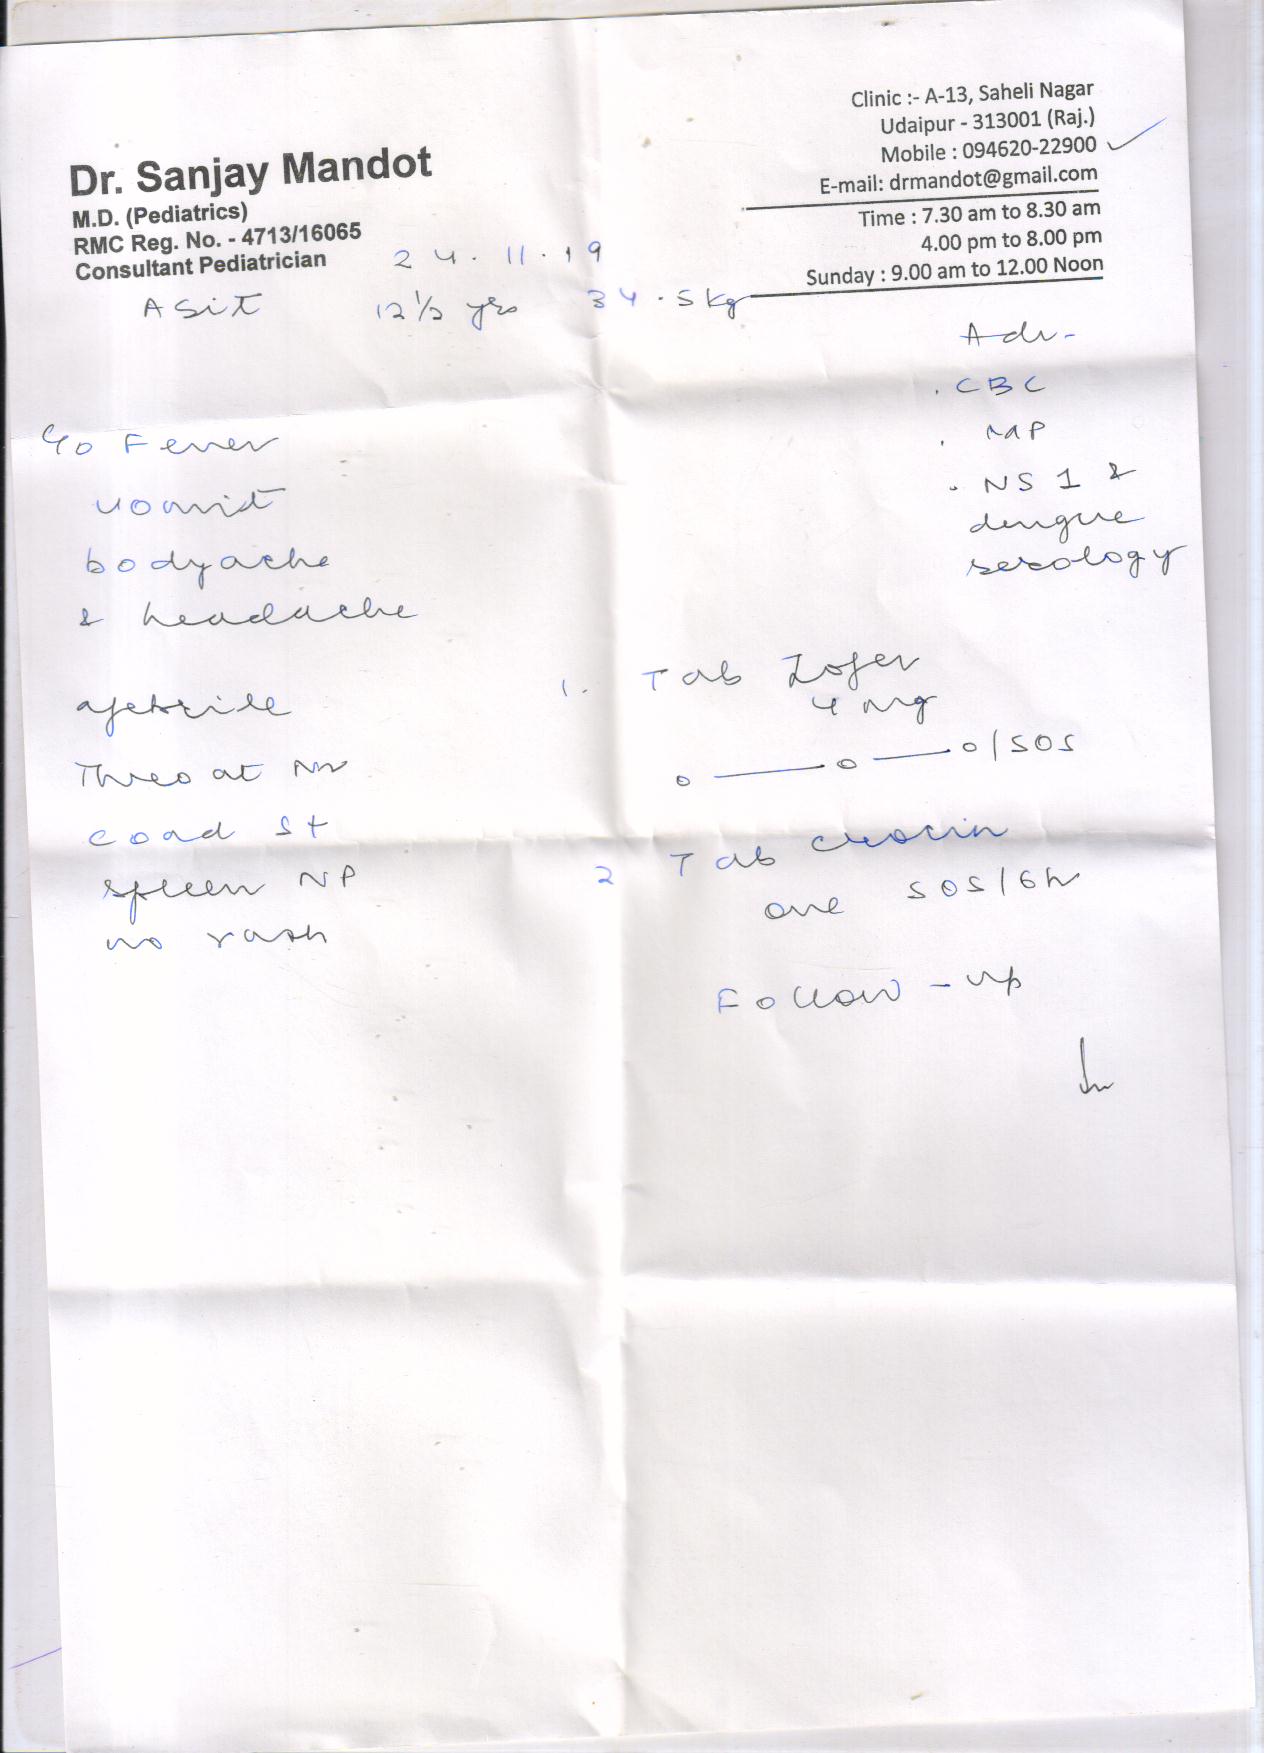 Dr. Sanjay Mandot
M.D. (Pediatrics)
RMC Reg. No. - 4713/16065
Consultant Pediatrician
Clinic :- A-13, Saheli Nagar
Udaipur - 313001 (Raj.)
Mobile : 094620-22900 ✓
E-mail: drmandot@gmail.com
Time : 7.30 am to 8.30 am
4.00 pm to 8.00 pm
Sunday : 9.00 am to 12.00 Noon
24.11.19
Asit 12½ yrs 34.5 kg
Adv-
. CBC
. MP
. NS 1 &
dengue
serology
Fever
vomit
bodyache
& headache
afebrile
Throat
St
spleen NP
no rash
1. Tab Zofer
4 mg
o — o — o/SOS
2 Tab crocin
one SOS/6h
Follow-up